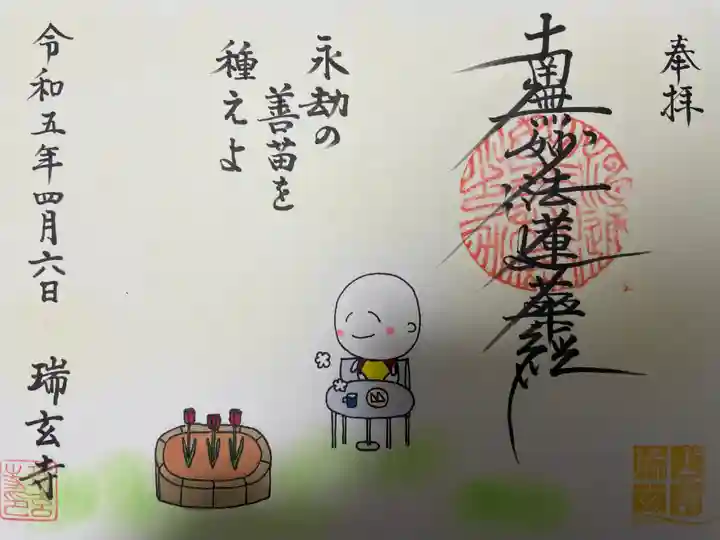 奉拝
南無妙法蓮華経
永劫の
善苗を
種えよ
令和五年四月六日 瑞玄寺